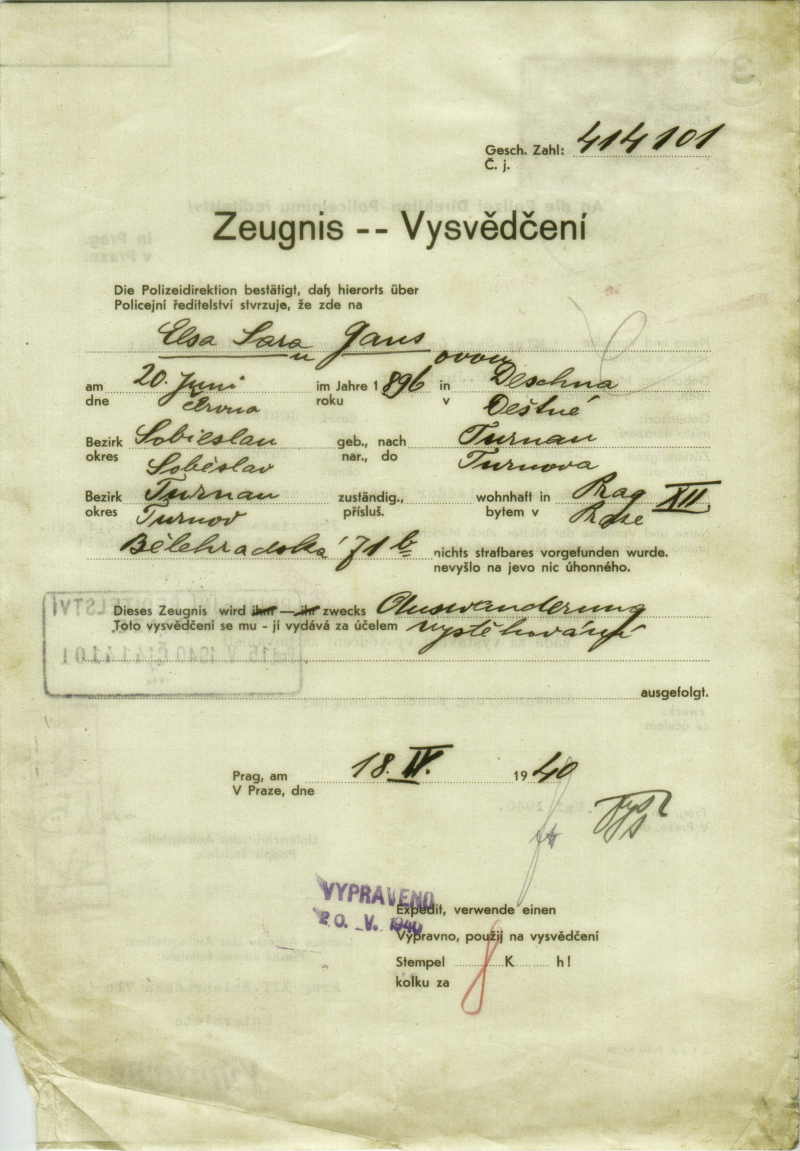 Gesch. Zahl: 414101
Č. j.
Zeugnis -- Vysvědčení
Die Polizeidirektion bestätigt, daß hierorts über
Policejní ředitelství stvrzuje, že zde na
Elsa Sara Gans
u ovou
am 20. Juni im Jahre 1896 in Deschna
dne června roku v Deštné
Bezirk Sobieslau geb., nach Turnau
okres Soběslav nar., do Turnova
Bezirk Turnau zuständig., wohnhaft in Prag XII
okres Turnov přísluš. bytem v Praze
Bělehradská 71 b nichts strafbares vorgefunden wurde.
nevyšlo na jevo nic úhonného.
Dieses Zeugnis wird ihm — ihr zwecks Auswanderung
Toto vysvědčení se mu - jí vydává za účelem vystěhování
15 V 1940 414101
ausgefolgt.
Prag, am 18. IV. 1940
V Praze, dne
VYPRAVENO
20. V. 1940
Expedit, verwende einen
Výpravno, použij na vysvědčení
Stempel K h!
kolku za